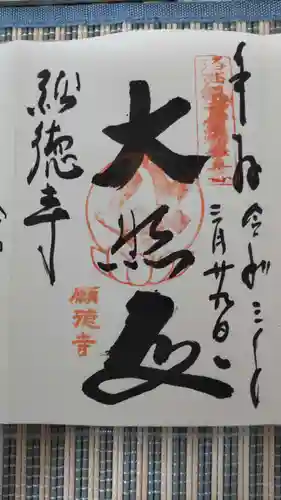 奉拝 令和三年
三月廿九日
大悲殿
願徳寺
願德寺